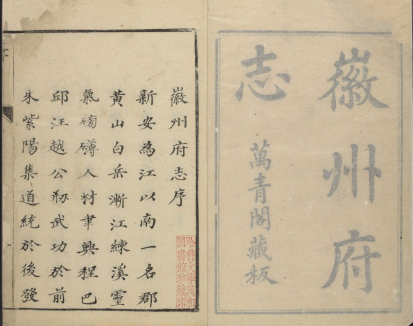 徽州府
志
萬青閣藏板
徽州府志序
新安為江以南一名郡
黃山白岳漸江練溪靈
氣磅礴人材聿興程巴
邱汪越公勒武功於前
朱紫陽集道統於後發